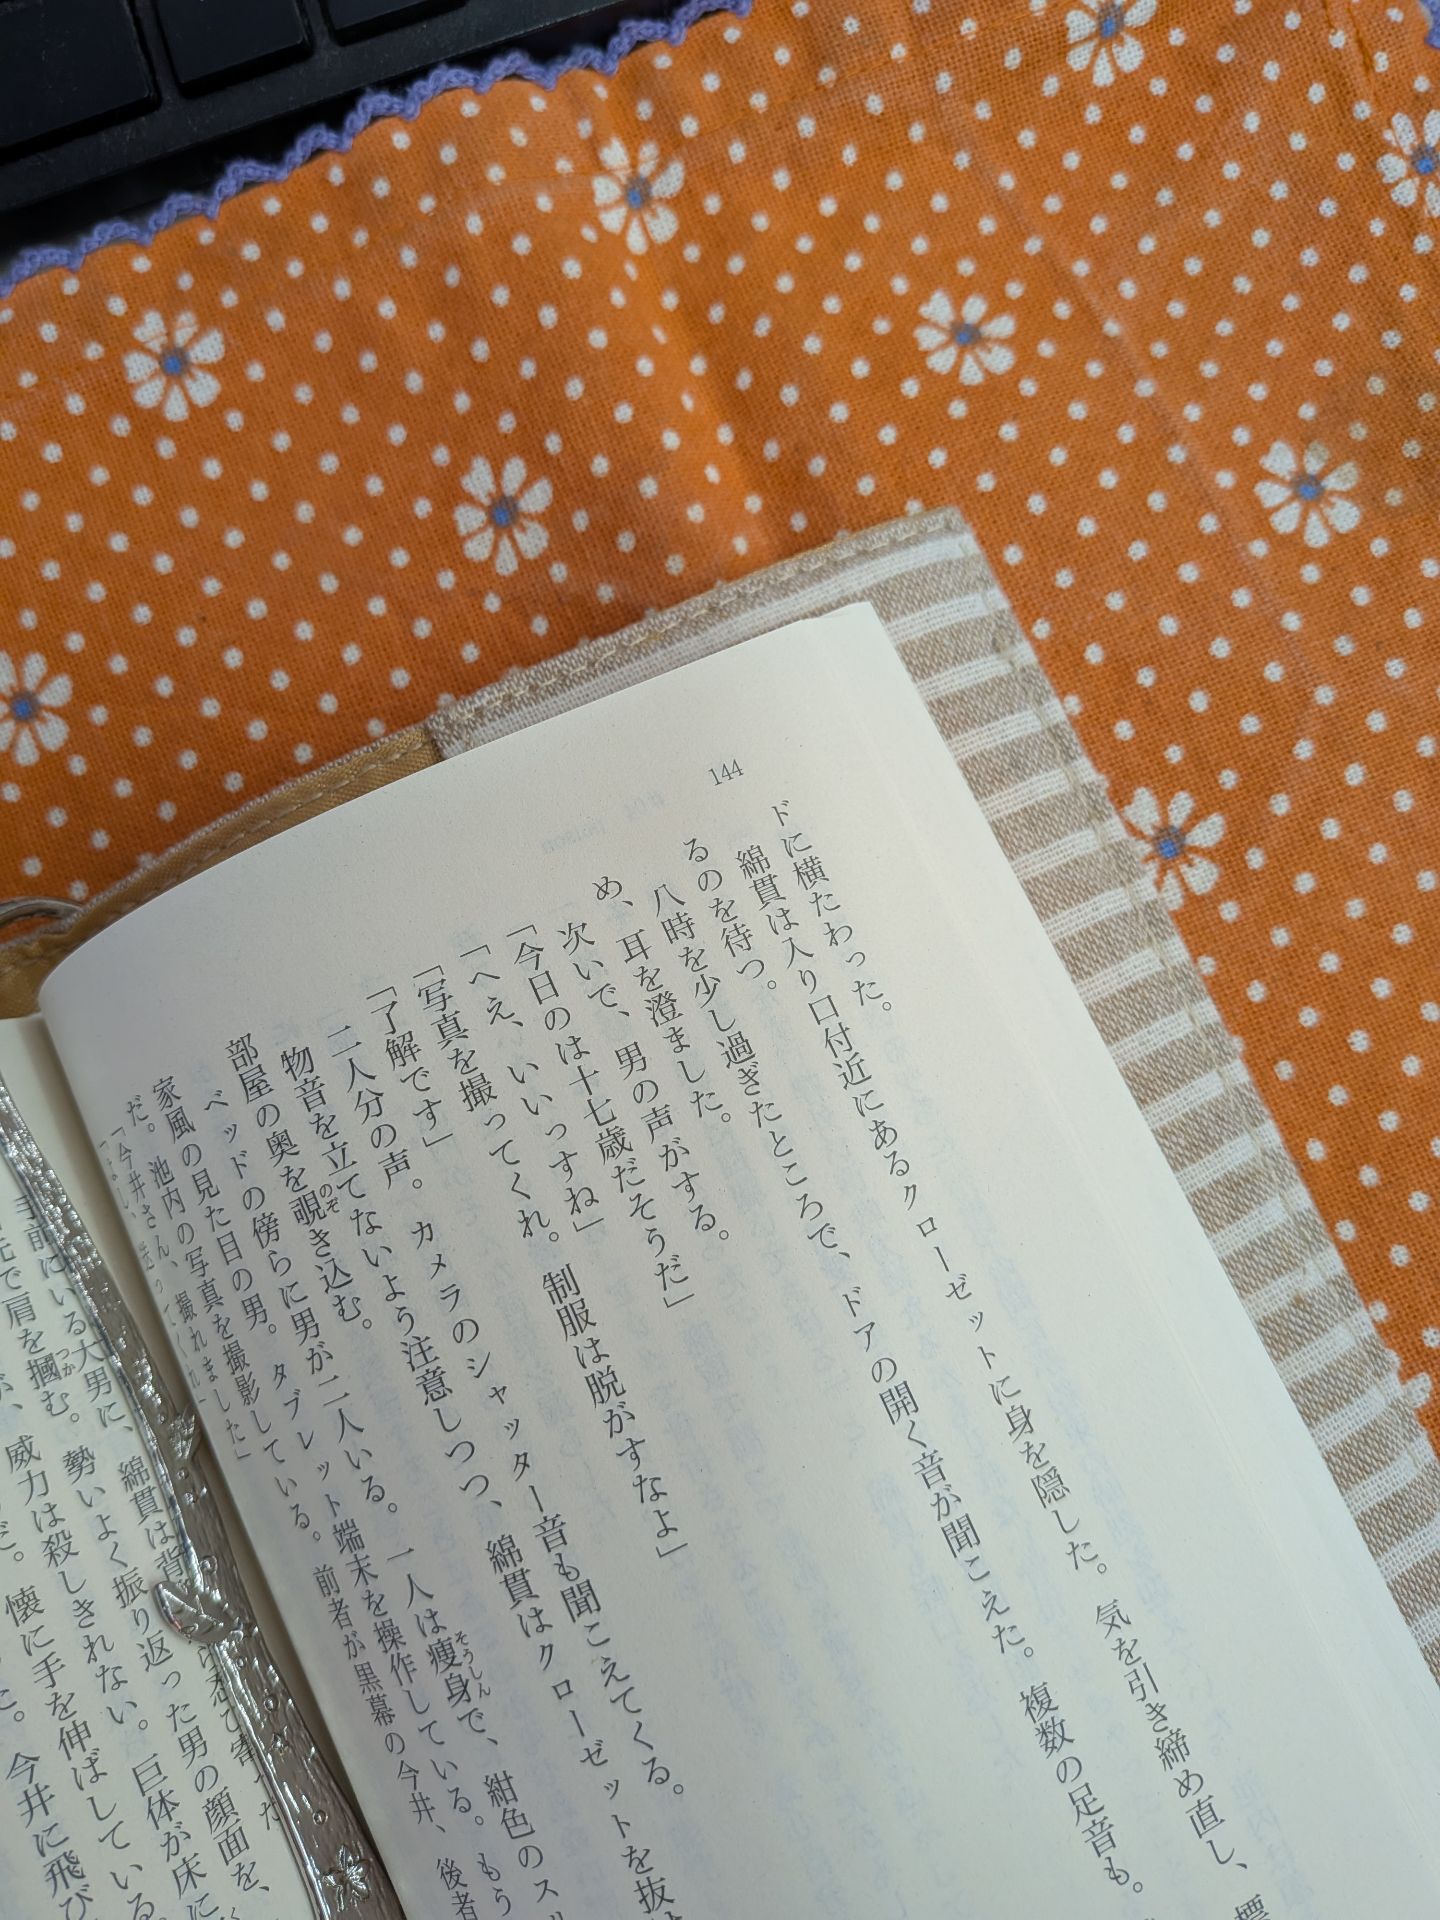 144
ドに横たわった。
綿貫は入り口付近にあるクローゼットに身を隠した。気を引き締め直し、標
るのを待つ。
八時を少し過ぎたところで、ドアの開く音が聞こえた。複数の足音も。
め、耳を澄ました。
次いで、男の声がする。
「今日のは十七歳だそうだ」
「へえ、いいっすね」
「写真を撮ってくれ。制服は脱がすなよ」
「了解です」
二人分の声。カメラのシャッター音も聞こえてくる。
物音を立てないよう注意しつつ、綿貫はクローゼットを抜け
部屋の奥を覗のぞき込む。
ベッドの傍らに男が二人いる。一人は痩身そうしんで、紺色のス
家風の見た目の男。タブレット端末を操作している。もう
だ。池内の写真を撮影している。前者が黒幕の今井、後者
「今井さん、撮れました」
手前にいる大男に、綿貫は背
で肩を摑つかむ。勢いよく振り返った男の顔面を、
威力は殺しきれない。巨体が床に
懐に手を伸ばしている
今井に飛び